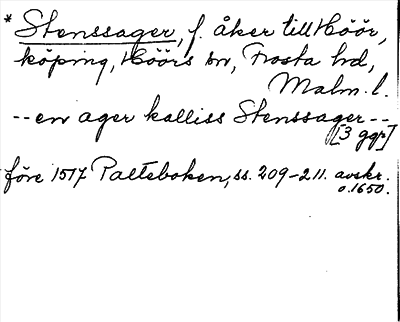 * Stenssager, f. åker till Höör,
köping, Höörs sn, Frosta hd,
Malm. l.
-- en ager kalliss Stenssager --
[3 ggr]
före 1517 Palteboken, ss. 209-211. avskr.
o. 1650.